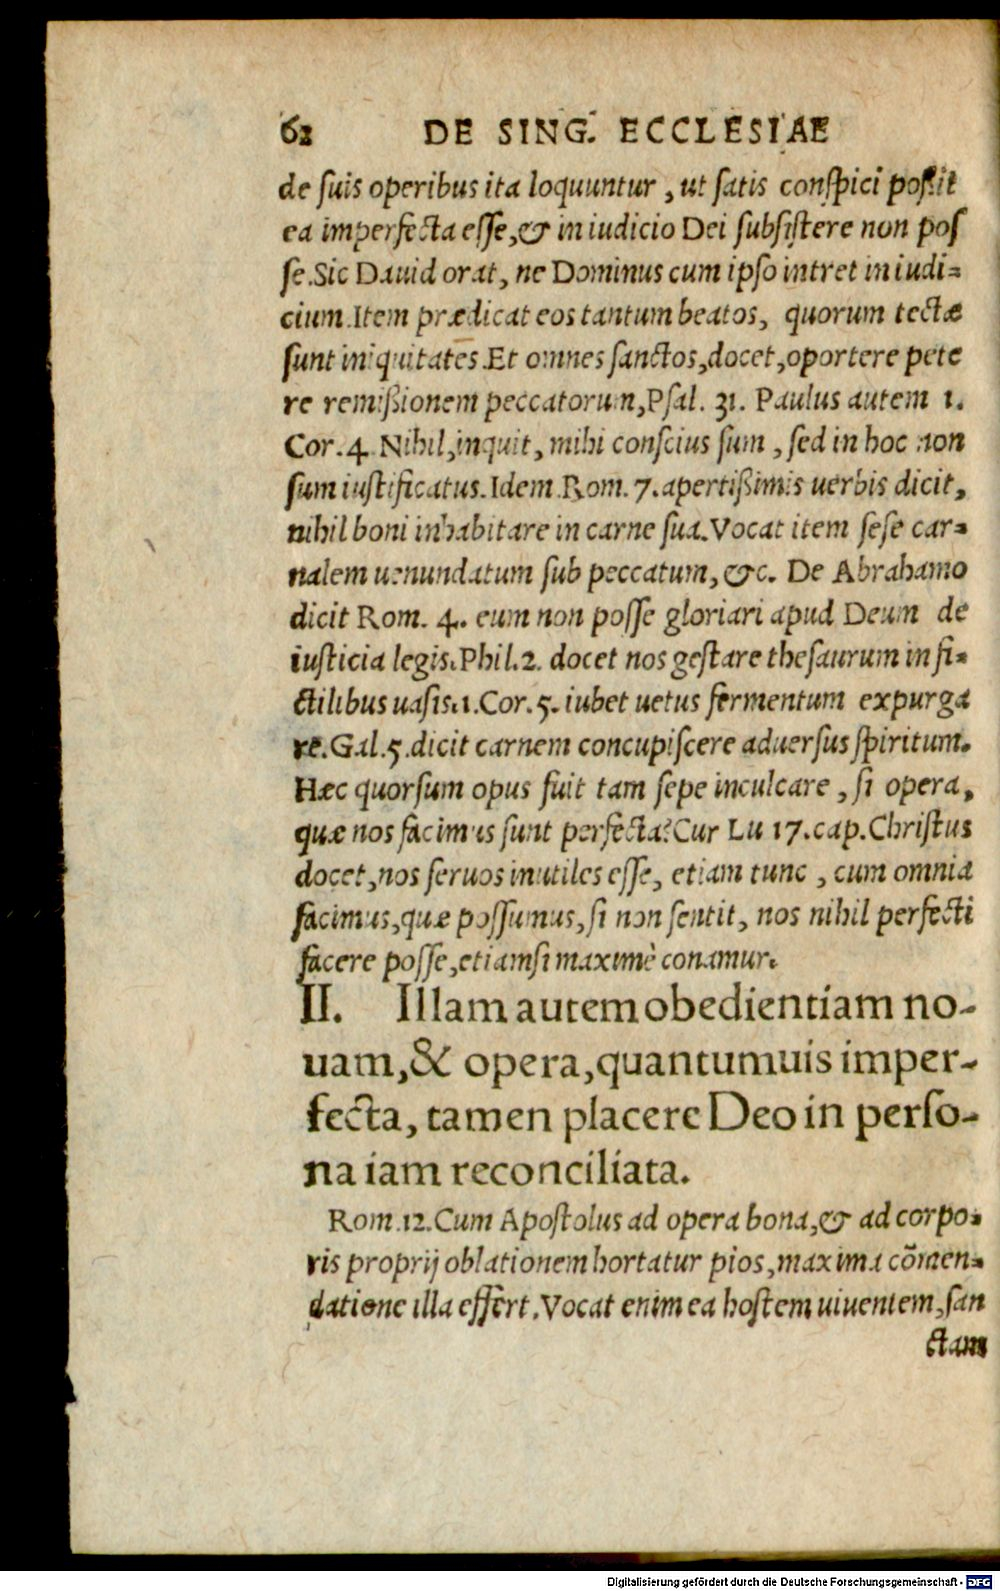 62 DE SING. ECCLESIAE
de ſuis operibus ita loquuntur, ut ſatis conſpici poſsit
ea imperfecta eſſe, & in iudicio Dei ſubſiſtere non poſ
ſe. Sic Dauid orat, ne Dominus cum ipſo intret in iudi-
cium. Item prædicat eos tantum beatos, quorum tectæ
ſunt iniquitates. Et omnes ſanctos, docet, oportere pete
re remißionem peccatorum, Pſal. 31. Paulus autem 1.
Cor. 4. Nihil, inquit, mihi conſcius ſum, ſed in hoc non
ſum iuſtificatus. Idem Rom. 7. apertißimis uerbis dicit,
nihil boni inhabitare in carne ſua. Vocat item ſeſe car-
nalem uenundatum ſub peccatum, &c. De Abrahamo
dicit Rom. 4. eum non poſſe gloriari apud Deum de
iuſticia legis. Phil. 2. docet nos geſtare theſaurum in fi-
ctilibus uaſis. 1. Cor. 5. iubet uetus fermentum expurga
re. Gal. 5. dicit carnem concupiſcere aduerſus ſpiritum.
Hæc quorſum opus fuit tam ſepe inculcare, ſi opera,
quæ nos facimus ſunt perfecta? Cur Lu 17. cap. Chriſtus
docet, nos ſeruos inutiles eſſe, etiam tunc, cum omnia
facimus, quæ poſſumus, ſi non ſentit, nos nihil perfecti
facere poſſe, etiamſi maximè conamur.
II. Illam autem obedientiam no-
uam, & opera, quantumuis imper-
fecta, tamen placere Deo in perſo-
na iam reconciliata.
Rom. 12. Cum Apoſtolus ad opera bona, & ad corpo-
ris proprij oblationem hortatur pios, maxima cõmen-
datione illa effert. Vocat enim ea hoſtem uiuentem, ſan
ctam
Digitalisierung gefördert durch die Deutsche Forschungsgemeinschaft - DFG